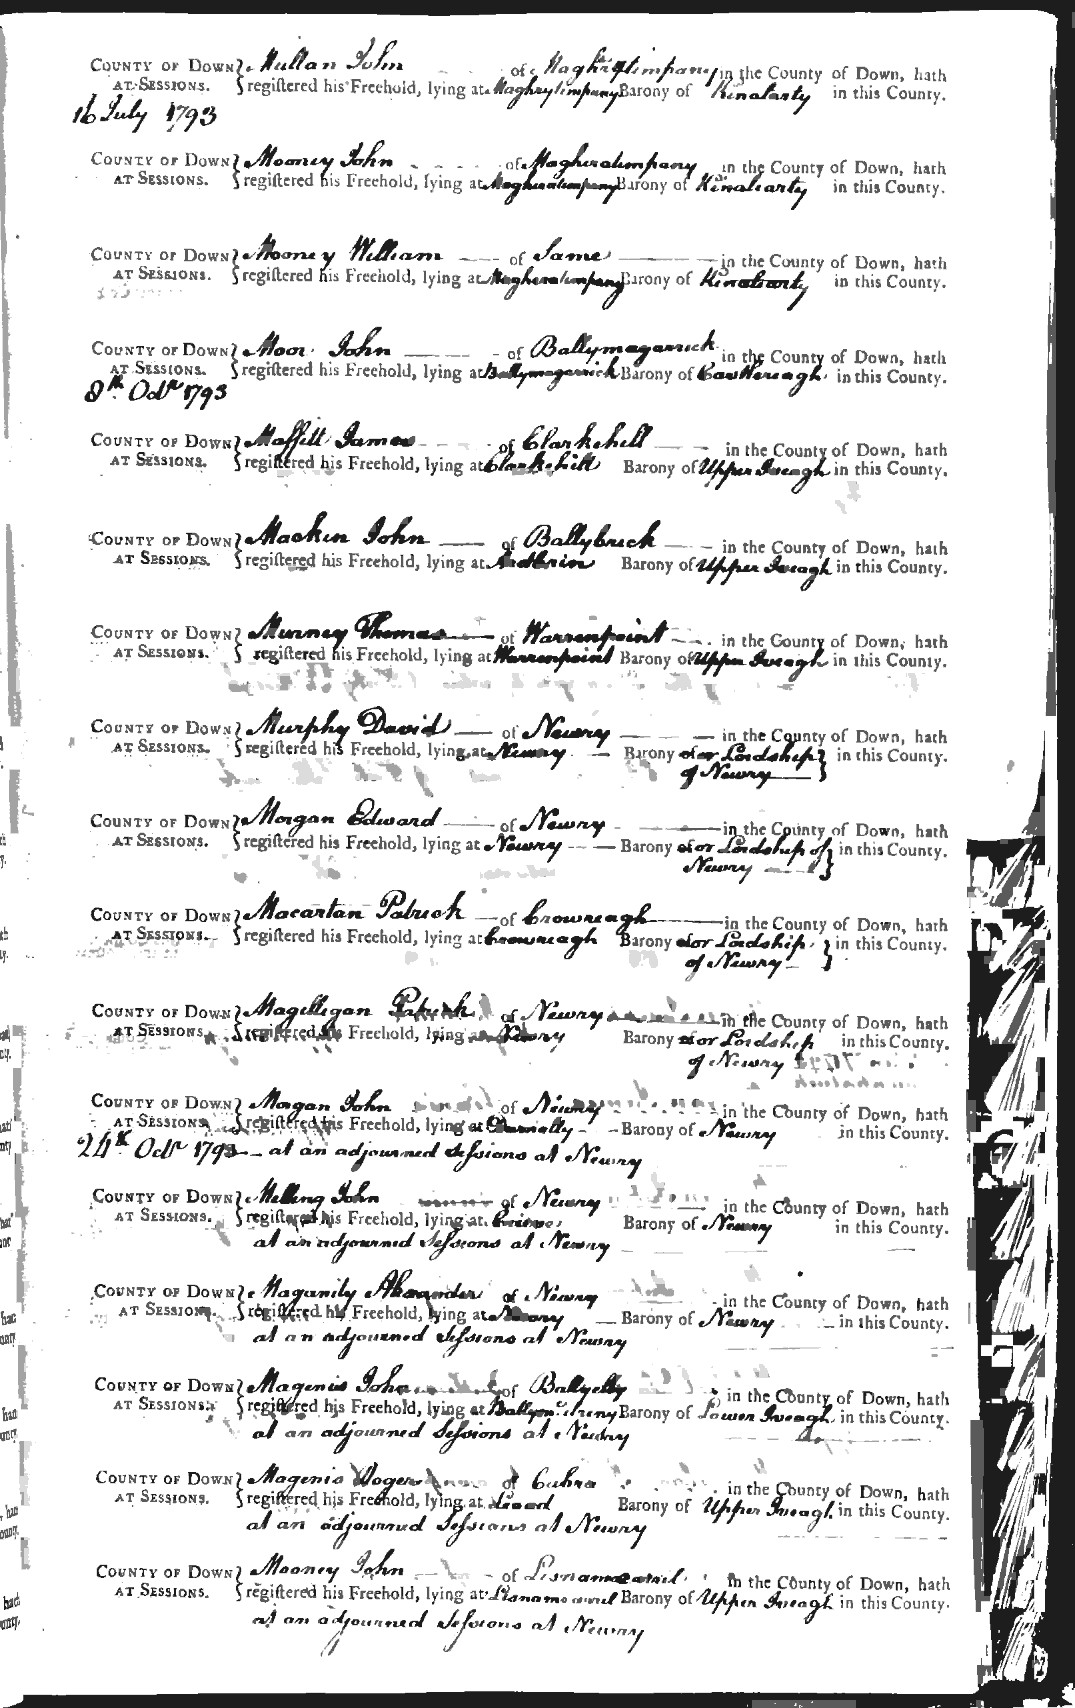 COUNTY OF DOWN } Mullan John of Maghrytimpany in the County of Down, hath
AT SESSIONS. registered his Freehold, lying at Maghrytimpany Barony of Kinalarty in this County.
16 July 1793
COUNTY OF DOWN } Mooney John of Magheratimpany in the County of Down, hath
AT SESSIONS. registered his Freehold, lying at Magheratimpany Barony of Kinaliarty in this County.
COUNTY OF DOWN } Mooney William of Same in the County of Down, hath
AT SESSIONS. registered his Freehold, lying at Magheratimpany Barony of Kinaliarty in this County.
COUNTY OF DOWN } Moor John of Ballymagarrick in the County of Down, hath
AT SESSIONS. registered his Freehold, lying at Ballymagarrick Barony of Castlereagh in this County.
8th Octr 1793
COUNTY OF DOWN } Moffett James of Clarkehill in the County of Down, hath
AT SESSIONS. registered his Freehold, lying at Clarkehill Barony of Upper Iveagh in this County.
COUNTY OF DOWN } Mackin John of Ballybrick in the County of Down, hath
AT SESSIONS. registered his Freehold, lying at Ardbrin Barony of Upper Iveagh in this County.
COUNTY OF DOWN } Murney Thomas of Warrenpoint in the County of Down, hath
AT SESSIONS. registered his Freehold, lying at Warrenpoint Barony of Upper Iveagh in this County.
COUNTY OF DOWN } Murphy David of Newry in the County of Down, hath
AT SESSIONS. registered his Freehold, lying at Newry Barony of or Lordship } in this County.
of Newry
COUNTY OF DOWN } Morgan Edward of Newry in the County of Down, hath
AT SESSIONS. registered his Freehold, lying at Newry Barony of or Lordship of } in this County.
Newry
COUNTY OF DOWN } Macartan Patrick of Crowreagh in the County of Down, hath
AT SESSIONS. registered his Freehold, lying at Crowreagh Barony of or Lordship } in this County.
of Newry
COUNTY OF DOWN } Magilligan Patrick of Newry in the County of Down, hath
AT SESSIONS. registered his Freehold, lying at Newry Barony of or Lordship in this County.
of Newry
COUNTY OF DOWN } Morgan John of Newry in the County of Down, hath
AT SESSIONS. registered his Freehold, lying at Barony of Newry in this County.
24th Octr 1793 at an adjourned Sessions at Newry
COUNTY OF DOWN } Melling John of Newry in the County of Down, hath
AT SESSIONS. registered his Freehold, lying at Barony of Newry in this County.
at an adjourned Sessions at Newry
COUNTY OF DOWN } Maganity Alexander of Newry in the County of Down, hath
AT SESSIONS. registered his Freehold, lying at Newry Barony of Newry in this County.
at an adjourned Sessions at Newry
COUNTY OF DOWN } Magenis John of Ballyelly in the County of Down, hath
AT SESSIONS. registered his Freehold, lying at Barony of Lower Iveagh in this County.
at an adjourned Sessions at Newry
COUNTY OF DOWN } Magenis Roger of Cabra in the County of Down, hath
AT SESSIONS. registered his Freehold, lying at Barony of Upper Iveagh in this County.
at an adjourned Sessions at Newry
COUNTY OF DOWN } Mooney John of in the County of Down, hath
AT SESSIONS. registered his Freehold, lying at Barony of Upper Iveagh in this County.
at an adjourned Sessions at Newry